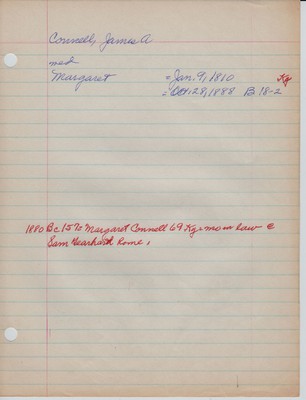 Connell, James A
med
Margaret = Jan. 9, 1810 Kg
= Oct. 28, 1888 B 18-2
1880 Bc 157c Margaret Connell 69 Kg = mo in law @
Sam Gearhard home.